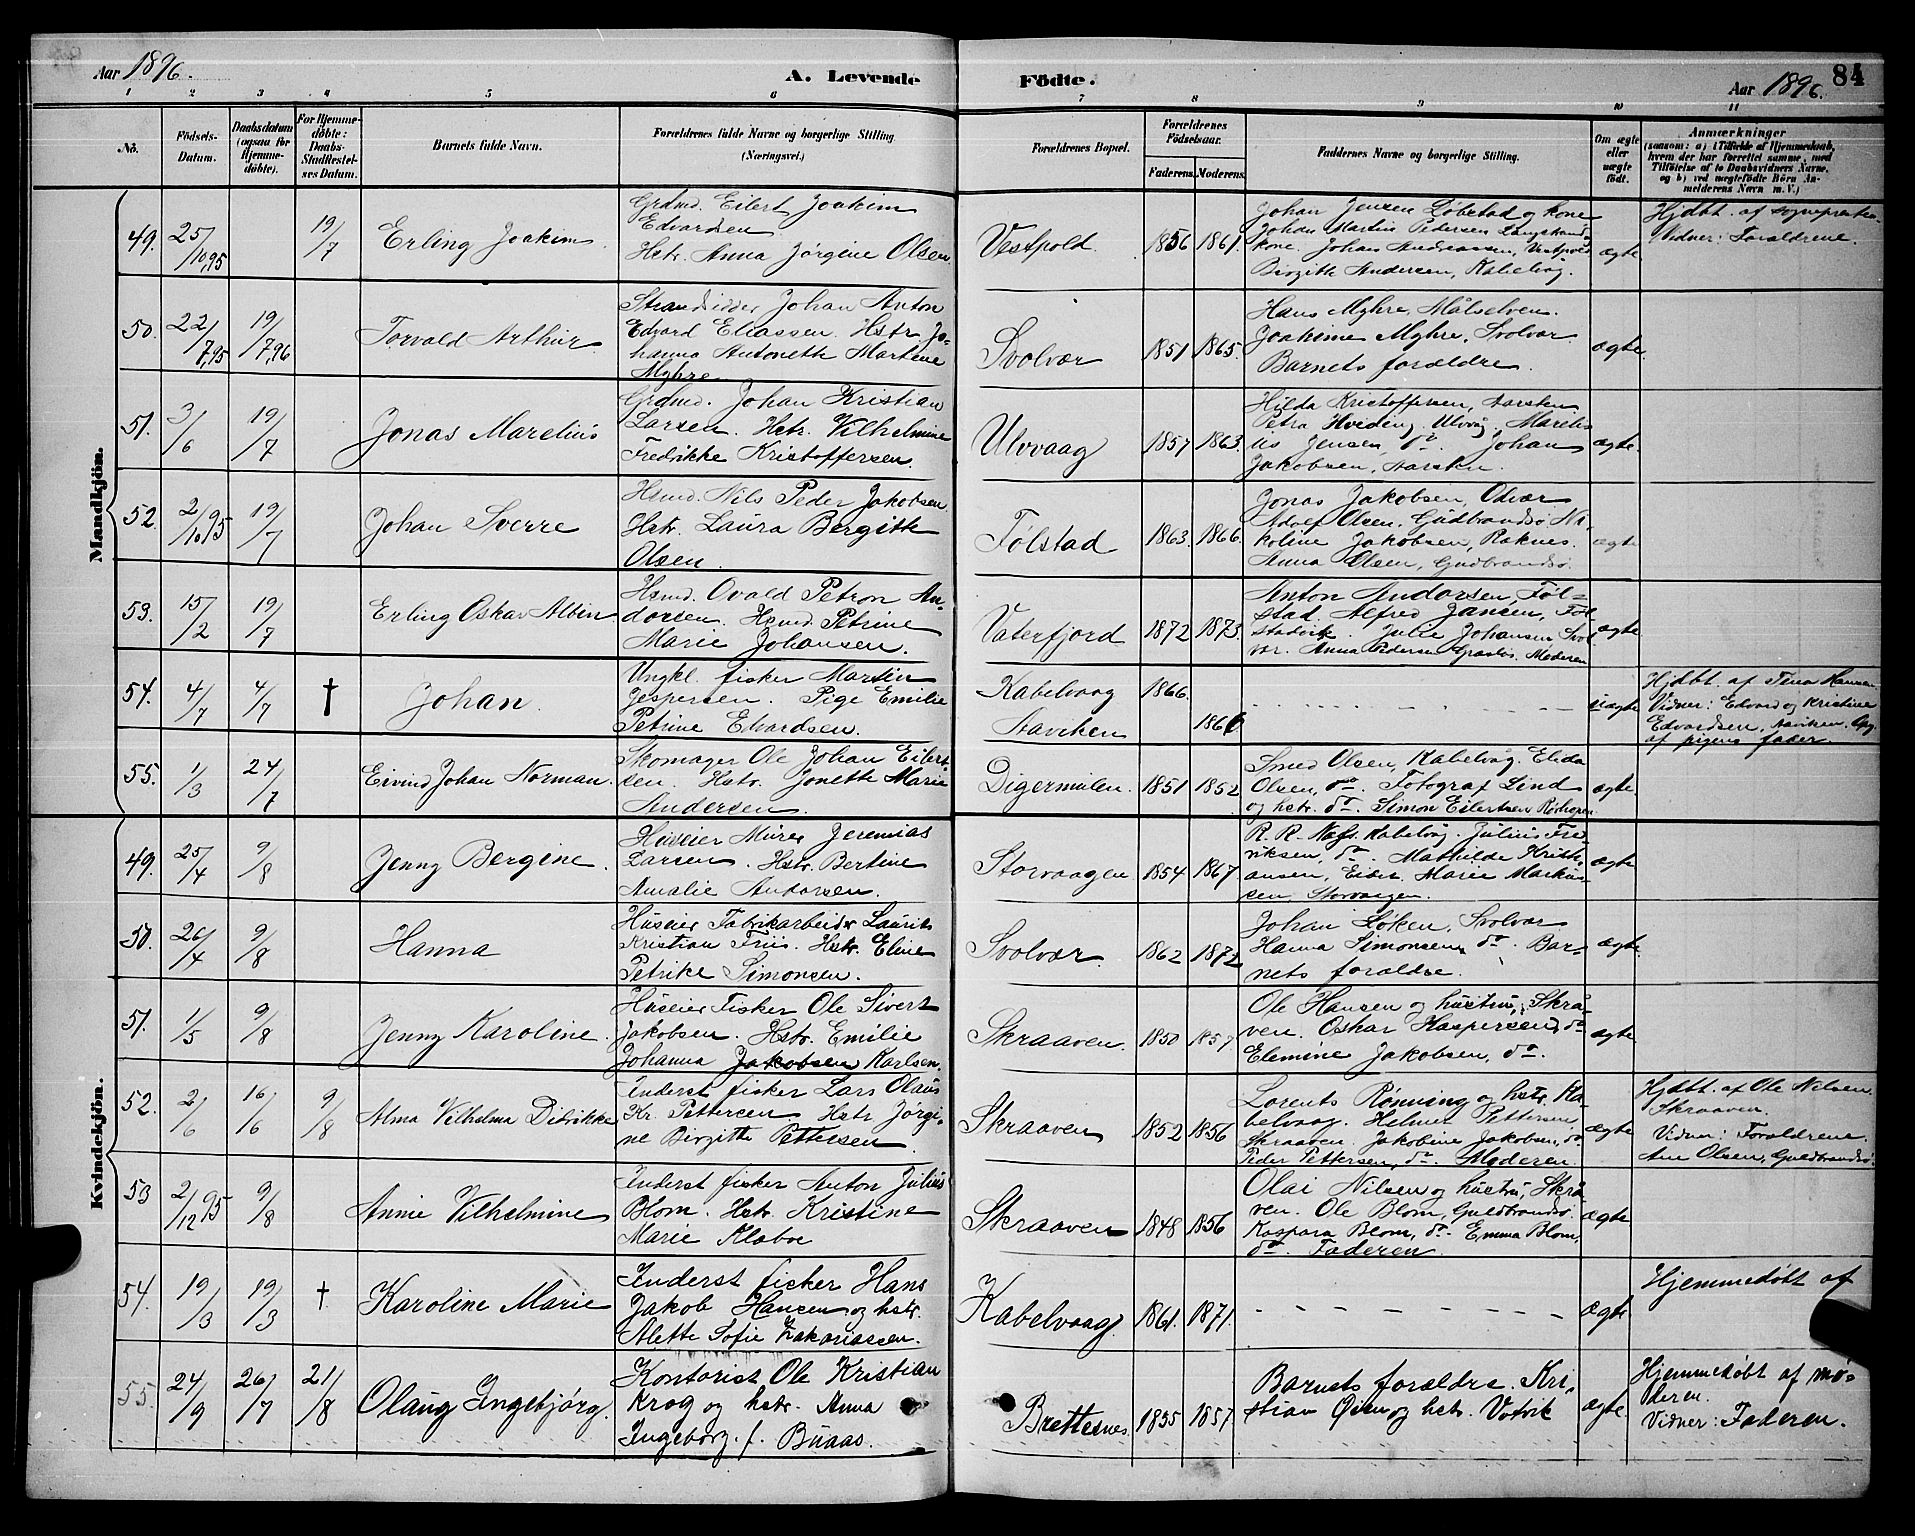 Aar 1896.
A. Levende
Fødte.
Aar 1896.
84
1 2 3 4 5 6 7 8 9 10 11
No.
Fødsels-
Datum.
Daabsdatum
(ogsaa for
Hjemme-
døbte).
For Hjemme-
døbte:
Daabs-
Stadfæstel-
ses Datum.
Barnets fulde Navn.
Forældrenes fulde Navne og borgerlige Stilling
(Næringsvei.)
Forældrenes Bopæl.
Forældrenes
Fødselsaar.
Faderens. Moderens.
Faddernes Navne og borgerlige Stilling.
Om ægte
eller
uægte
født.
Anmærkninger
(saasom: a) i Tilfælde af Hjemmedaab,
hvem der har forrettet samme, med
Tilføielse af to Daabsvidners Navne,
og b) ved uægtefødte Børn An-
melderens Navn m. V.)
Mandkjøn.
49. 25/10,95 19/7 Erling Joakim.
Grdmd. Eilert Joakim
Edvardsen
Hstr. Anna Jørgine Olsen.
Vestpold. 1856 1861.
Johan Jensen Løbstad og kone
Johan Martin Pedersen Langstrand og
kone. Johan Andreassen, Vestpold
Birgitte Andersen, Kabelvåg.
ægte
Hjdbt. af sognepresten.
Vidner: Forældrene.
50. 22/7,95 19/7,96 Torvald Arthur.
Strandsidder Johan Anton
Edvard Eliassen. Hstr. Jo-
hanna Antonette Martine
Myhre
Svolvær 1851 1865.
Hans Myhre, Målselven.
Joakime Myhre, Svolvær
Barnets forældre.
ægte
51. 3/6 19/7 Jonas Marelius
Grdmd. Johan Kristian
Larsen. Hstr. Vilhelmine
Fredrikke Kristoffersen.
Ulvvaag 1857 1863.
Hilda Kristoffersen, Aarsten
Petra Hveding, Ulvåg. Mareli-
us Jensen, do. Johan
Jakobsen, Aarsten.
ægte.
52. 2/10 95 19/7 Johan Sverre
Hsmd. Nils Peder Jakobsen
Hstr. Laura Bergitte
Olsen.
Følstad 1863. 1866.
Jonas Jakobsen, Odvær
Adolf Olsen, Gudbrandsø Ni-
koline Jakobsen, Raknes.
Anna Olsen, Gudbrandsø.
ægte
53. 15/2 19/7 Erling Oskar Albin
Hsmd. Ovald Petron An-
dorsen. Hsmd Petrine
Marie Johansen.
Vaterfjord 1872 1873.
Anton Andorsen, Føl-
stad. Alfred Jansen, Føl-
stadvik. Julie Johansen Svol-
vær. Anna Pedersen Moderen
ægte
54. 4/7 4/7 † Johan.
Ungkl. fisker Martin
Jespersen. Pige Emilie
Petrine Edvardsen.
Kabelvaag 1866.
Aaviken
uægte
Hjdbt. af Tina Hansen
Vidner: Edvard og Kristine
Edvardsen, Aaviken. Opg.
af pigens fader.
55. 1/3 24/7 Eivind Johan Norman.
Skomager Ole Johan Eilert-
sen. Hstr. Jonette Marie
Andersen
Digermulen. 1851 1852
Smed Olsen, Kabelvåg. Elida
Olsen, do. Fotograf Lind
og hstr. do. Simon Eilertsen
ægte
Kvindekjøn.
49. 25/4 9/8 Jenny Bergine.
Huseier Murer Jeremias
Larsen. Hstr. Bertine
Amalie Andorsen.
Storvaagen 1854 1867
R. R. Næss. Kabelvåg. Julius Fre-
riksen, do. Mathilde Kristi-
ansen, Eider. Marie Markus-
sen, Storvaagen.
ægte
50. 26/4 9/8 Hanna
Huseier Fabrikarbeider Laurits
Kristian Friis. Hstr. Eline
Petrike Simonsen.
Svolvær. 1862 1872
Johan Løken, Svolvær
Hanna Simonsen, do. Bar-
nets forældre.
ægte.
51. 1/5 9/8 Jenny Karoline.
Huseier Fisker Ole Sivert
Jakobsen. Hstr. Emilie
Johanna Jakobsen Karlsen.
Skraaven. 1850 1857
Ole Hansen og hustru, Skrå-
ven. Oskar Haspersen, do
Elemine Jakobsen, do.
ægte
52. 2/6 16/6 9/8 Alma Vilhelma Didrikke
Inderst fisker Lars Olaus
Kr. Pettersen Hstr. Jørgi-
ne Birgitte Pettersen
Skraaven 1852 1856
Lorents Rønning og hstr. Ka-
belvaag. Helmer Pettersen,
Skraaven. Jakobine Jakobsen, do.
Peder Pettersen, do. Moderen.
ægte
Hjdbt. af Ole Nilsen
Skraaven.
Vidner: Forældrene.
Ane Olsen, Guldbrandsø.
53 2/12 95 9/8 Annie Vilhelmine
Inderst fisker Anton Julius
Blom. Hstr. Kristine
Marie Klæboe
Skraaven 1848 1856
Olai Nilsen og hustru, Skrå-
ven. Ole Blom, Guldbrandsø.
Kaspara Blom, do. Emma Blom,
do. Faderen.
ægte
54. 19/3 19/3 † Karoline Marie
Inderst fisker Hans
Jakob Hansen og hstr.
Alette Sofie Zakariassen.
Kabelvaag 1861. 1871.
ægte
Hjemmedøbt af
55. 24/9 26/7 21/8 Olaug Ingebjørg.
Kontorist Ole Kristian
Krog og hstr. Anna
Ingeborg f. Buaas.
Brettesnes 1855 1857
Barnets forældre. Kri-
stian Øien og hstr. Votvik
ægte.
Hjemmedøbt af mo-
deren.
Vidner: Faderen.